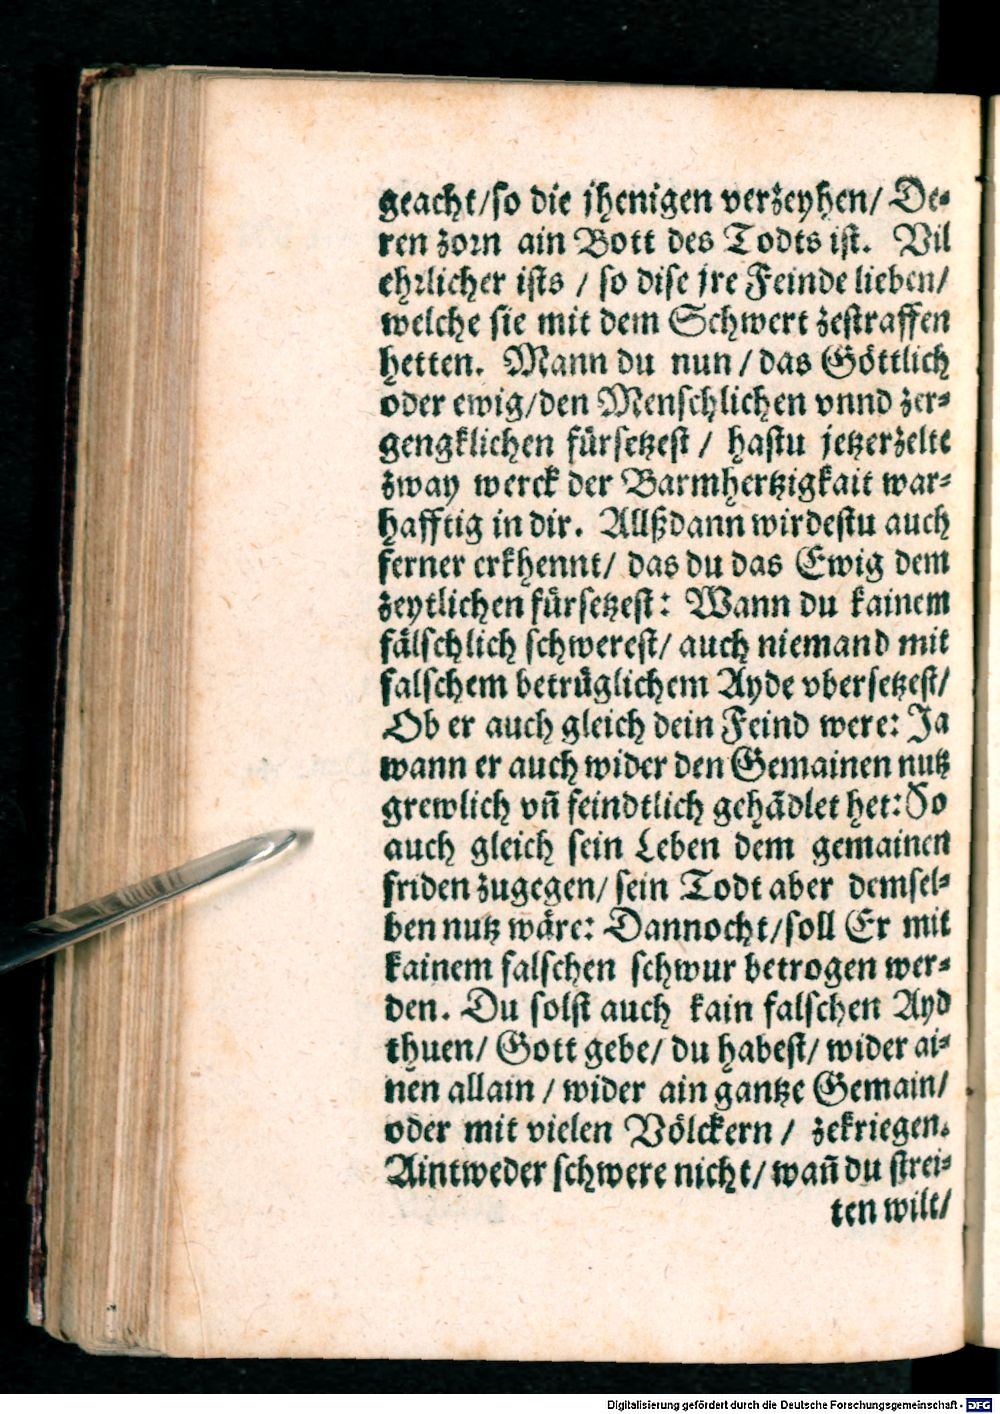 geacht/so die jhenigen verzeyhen/ De-
ren zorn ain Bott des Todts ist. Vil
ehrlicher ists / so dise jre Feinde lieben/
welche sie mit dem Schwert zestraffen
hetten. Mann du nun / das Göttlich
oder ewig/den Menschlichen vnnd zer-
gengklichen fürsetzest / hastu jetzerzelte
zway werck der Barmhertzigkait war-
hafftig in dir. Allßdann wirdestu auch
ferner erkhennt/ das du das Ewig dem
zeytlichen fürsetzest: Wann du kainem
fälschlich schwerest/ auch niemand mit
falschem betrüglichem Ayde vbersetzest/
Ob er auch gleich dein Feind were: Ja
wann er auch wider den Gemainen nutz
grewlich vñ feindtlich gehãdlet het: So
auch gleich sein Leben dem gemainen
friden zugegen/ sein Todt aber demsel-
ben nutz wäre: Dannocht/soll Er mit
kainem falschen schwur betrogen wer-
den. Du solst auch kain falschen Ayd
thuen/ Gott gebe/ du habest/ wider ai-
nen allain / wider ain gantze Gemain/
oder mit vielen Völckern / zekriegen.
Aintweder schwere nicht/ wañ du strei-
ten wilt/
Digitalisierung gefördert durch die Deutsche Forschungsgemeinschaft - DFG